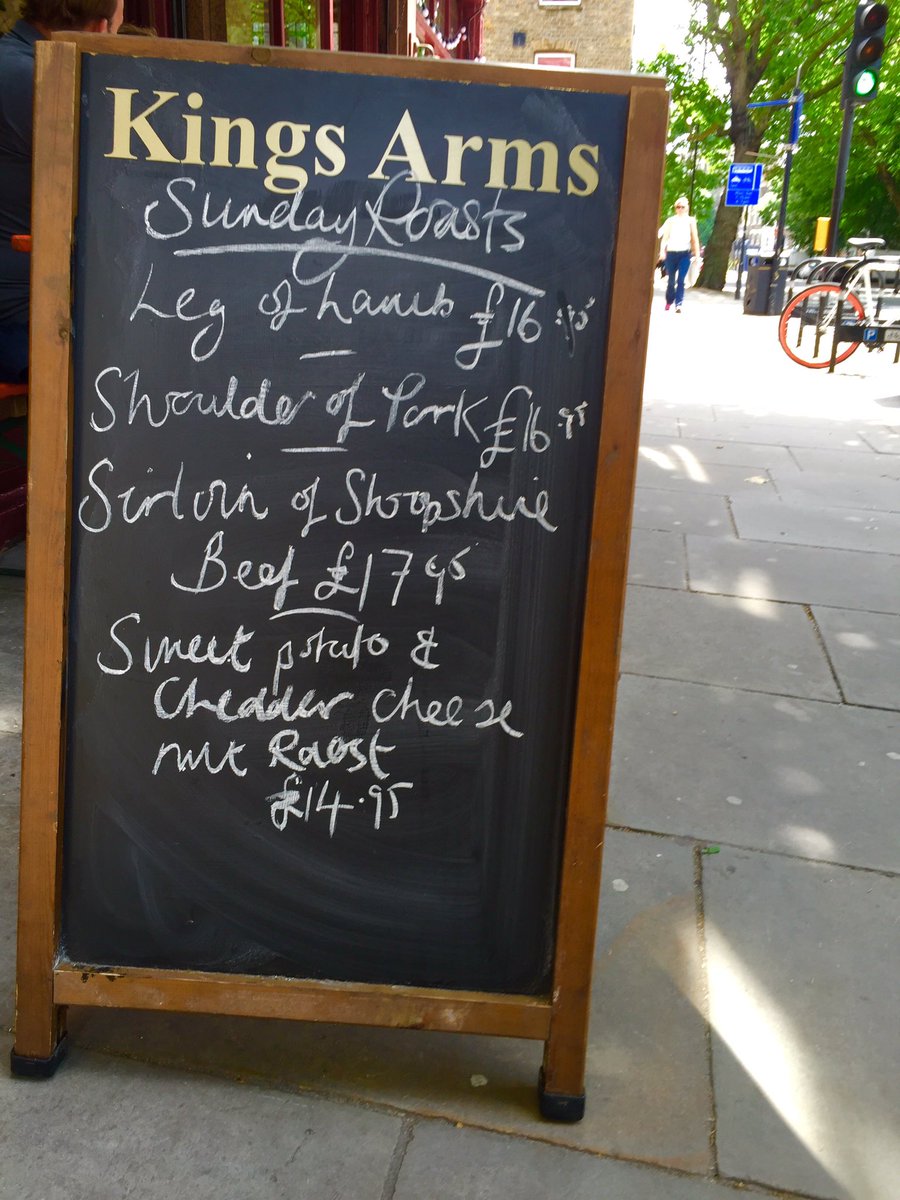 Kings Arms
Sunday Roasts
Leg of Lamb £16
Shoulder of Pork £16.95
Sirloin of Shropshire
Beef £17.95
Sweet potato &
Chedder cheese
nut Roast
£14.95
P